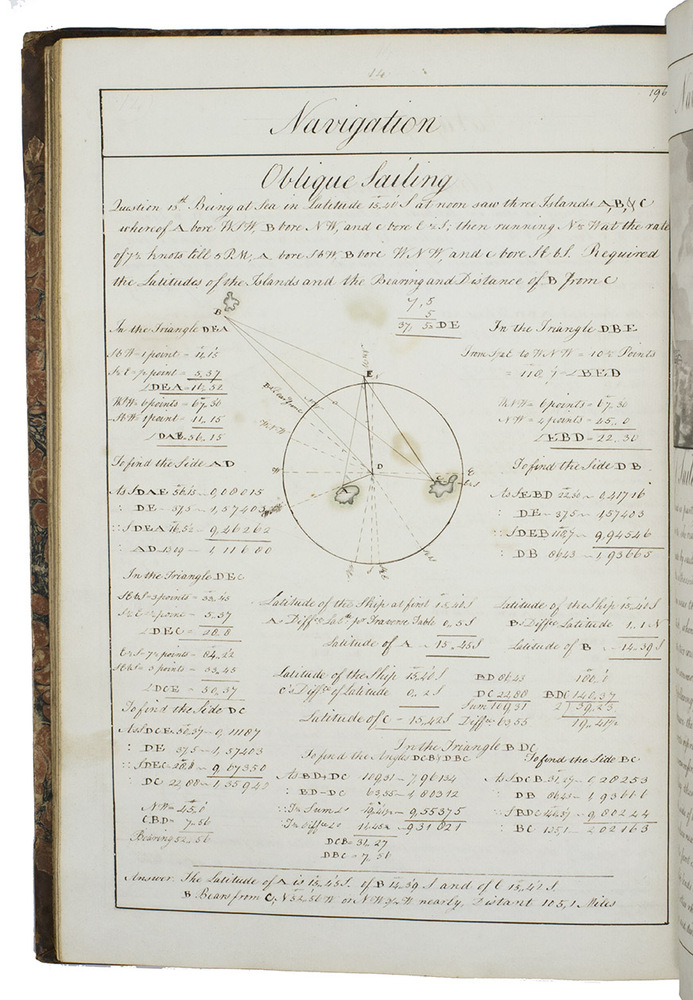 14
196
Navigation
Oblique Sailing
Question 15th Being at Sea in Latitude 15,40 S at noon saw three Islands A, B, & C
whereof A bore WSW, B bore NW, and C bore E½S; then running N½W at the rate
of 7½ knots till 5 P.M., A bore SbW B bore W.N.W, and C bore SEbS. Required
the Latitudes of the Islands and the Bearing and Distance of B from C
7,5
5
37,5 DE
In the Triangle DEA
SbW = 1 point = 11,15
½ point = 5,37
∠DEA = 16,52
WSW = 6 points = 67,30
SbW = 1 point = 11,15
∠DAE 56,15
To find the Side AD
As S DAE 56,15 ~ 0,08015
: DE ~ 37,5 ~ 1,57403
:: S DEA 16,52 ~ 9,46262
: AD 13,09 ~ 1,11680
In the Triangle DBE
From S½E to WNW = 10½ Points
= 118,7 = ∠BED
WNW = 6 points = 67,30
NW = 4 points = 45,0
∠EBD = 22,30
To find the Side DB
As S EBD 22,30 ~ 0,41716
: DE ~ 37,5 ~ 1,57403
:: S DEB 118,7 ~ 9,94546
: DB 86,43 ~ 1,93665
B
E
D
A
C
W
E
S
In the Triangle DEC
SEbS = 3 points = 33,45
S½E = ½ point = 5,37
∠DEC = 28,8
E½S = 7½ points = 84,22
SEbS = 3 points = 33,45
∠DCE = 50,37
To find the Side DC
As S DCE 50,37 ~ 0,11187
: DE 37,5 ~ 1,57403
:: S DEC 28,8 ~ 9,67350
: DC 22,88 ~ 1,35940
NW = 45,0
CBD = 7,56
Bearing 52,56
Latitude of the Ship at first 15,40 S
A's Diffce Latde pr Traverse Table 0,5 S
Latitude of A ~ 15,45 S
Latitude of the Ship 15,40 S
B's Diffce Latitude 1,1 N
Latitude of B ~ 14,39 S
Latitude of the Ship 15,40 S
C's Diffce of Latitude 0,2 S
Latitude of C = 15,42 S
BD 86,43
DC 22,88
Sum 109,31
Diffce 63,55
180,0
BDC 140,37
2) 39,23
19,41½
In the Triangle BDC
To find the Angles DCB & DBC
As BD+DC 109,31 ~ 7,96134
: BD-DC 63,55 ~ 1,80312
:: 19,41½ ~ 9,55375
: 11,45½ ~ 9,31821
DCB = 31,27
DBC = 7,56
To find the Side BC
As S DCB 31,27 ~ 0,28253
: DB 86,43 ~ 1,93666
:: S BDC 140,37 ~ 9,80244
: BC 105,1 ~ 2,02163
Answer. The Latitude of A is 15,45 S. of B 14,39 S and of C 15,42 S.
B Bears from C, N 52,56 W or NW¾W nearly, Distant 105,1 Miles